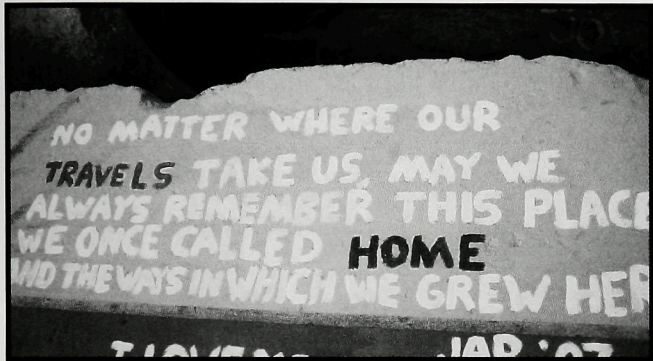 NO MATTER WHERE OUR
TRAVELS TAKE US, MAY WE
ALWAYS REMEMBER THIS PLACE
WE ONCE CALLED HOME
AND THE WAYS IN WHICH WE GREW HER